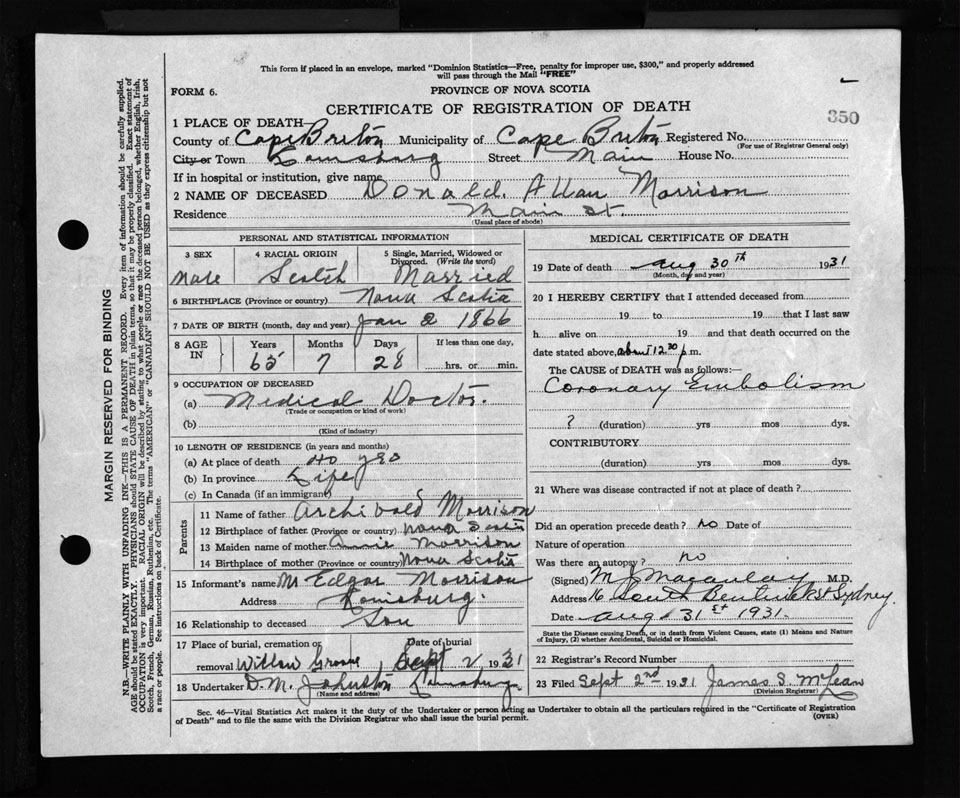 This form if placed in an envelope, marked "Dominion Statistics—Free, penalty for improper use, $300," and properly addressed
will pass through the Mail "FREE"
FORM 6. PROVINCE OF NOVA SCOTIA
CERTIFICATE OF REGISTRATION OF DEATH
350
1 PLACE OF DEATH—
County of Cape Breton Municipality of Cape Breton Registered No.
(For use of Registrar General only)
City or Town Louisburg Street Main House No.
If in hospital or institution, give name
2 NAME OF DECEASED Donald Allan Morrison
Residence Main St.
(Usual place of abode)
PERSONAL AND STATISTICAL INFORMATION
3 SEX 4 RACIAL ORIGIN 5 Single, Married, Widowed or
Divorced. (Write the word)
Male Scotch Married
6 BIRTHPLACE (Province or country) Nova Scotia
7 DATE OF BIRTH (month, day and year) Jan 2 1866
8 AGE IN Years Months Days If less than one day,
65 7 28 hrs. or min.
9 OCCUPATION OF DECEASED
(a) Medical Doctor.
(Trade or occupation or kind of work)
(b)
(Kind of industry)
10 LENGTH OF RESIDENCE (in years and months)
(a) At place of death 40 yrs
(b) In province Life
(c) In Canada (if an immigrant)
Parents
11 Name of father Archibald Morrison
12 Birthplace of father (Province or country) Nova Scotia
13 Maiden name of mother Annie Morrison
14 Birthplace of mother (Province or country) Nova Scotia
15 Informant's name Mr Edgar Morrison
Address Louisburg.
16 Relationship to deceased Son
17 Place of burial, cremation or Date of burial
removal Willow Grove, Sept 2, 1931
18 Undertaker D. M. Johnston Louisburg
(Name and address)
MEDICAL CERTIFICATE OF DEATH
19 Date of death Aug 30th 1931
(Month, day and year)
20 I HEREBY CERTIFY that I attended deceased from
19 to 19 that I last saw
h alive on 19 and that death occurred on the
date stated above, about 12.30 p m.
The CAUSE of DEATH was as follows:—
Coronary Embolism
? (duration) yrs mos dys.
CONTRIBUTORY
(duration) yrs mos dys.
21 Where was disease contracted if not at place of death?
Did an operation precede death? no Date of
Nature of operation
Was there an autopsy? no
(Signed) M J Macaulay M.D.
Address 16 South Bentinck St Sydney.
Date Aug 31st 1931.
State the Disease causing Death, or in death from Violent Causes, state (1) Means and Nature
of Injury, (2) whether Accidental, Suicidal or Homicidal.
22 Registrar's Record Number
23 Filed Sept 2nd 1931 James S. McLean
(Division Registrar)
Sec. 46—Vital Statistics Act makes it the duty of the Undertaker or person acting as Undertaker to obtain all the particulars required in the "Certificate of Registration
of Death" and to file the same with the Division Registrar who shall issue the burial permit. (OVER)
MARGIN RESERVED FOR BINDING
N.B.—WRITE PLAINLY WITH UNFADING INK—THIS IS A PERMANENT RECORD. Every item of information should be carefully supplied.
AGE should be stated EXACTLY. PHYSICIANS should STATE CAUSE OF DEATH in plain terms, so that it may be properly classified. Exact statement of
OCCUPATION is very important. RACIAL ORIGIN will be described by stating to what people or race the deceased person belonged, whether English, Irish,
Scotch, French, German, Russian, Ruthenian, etc. The terms "AMERICAN" or "CANADIAN" SHOULD NOT BE USED as they express citizenship but not
a race or people. See instructions on back of Certificate.